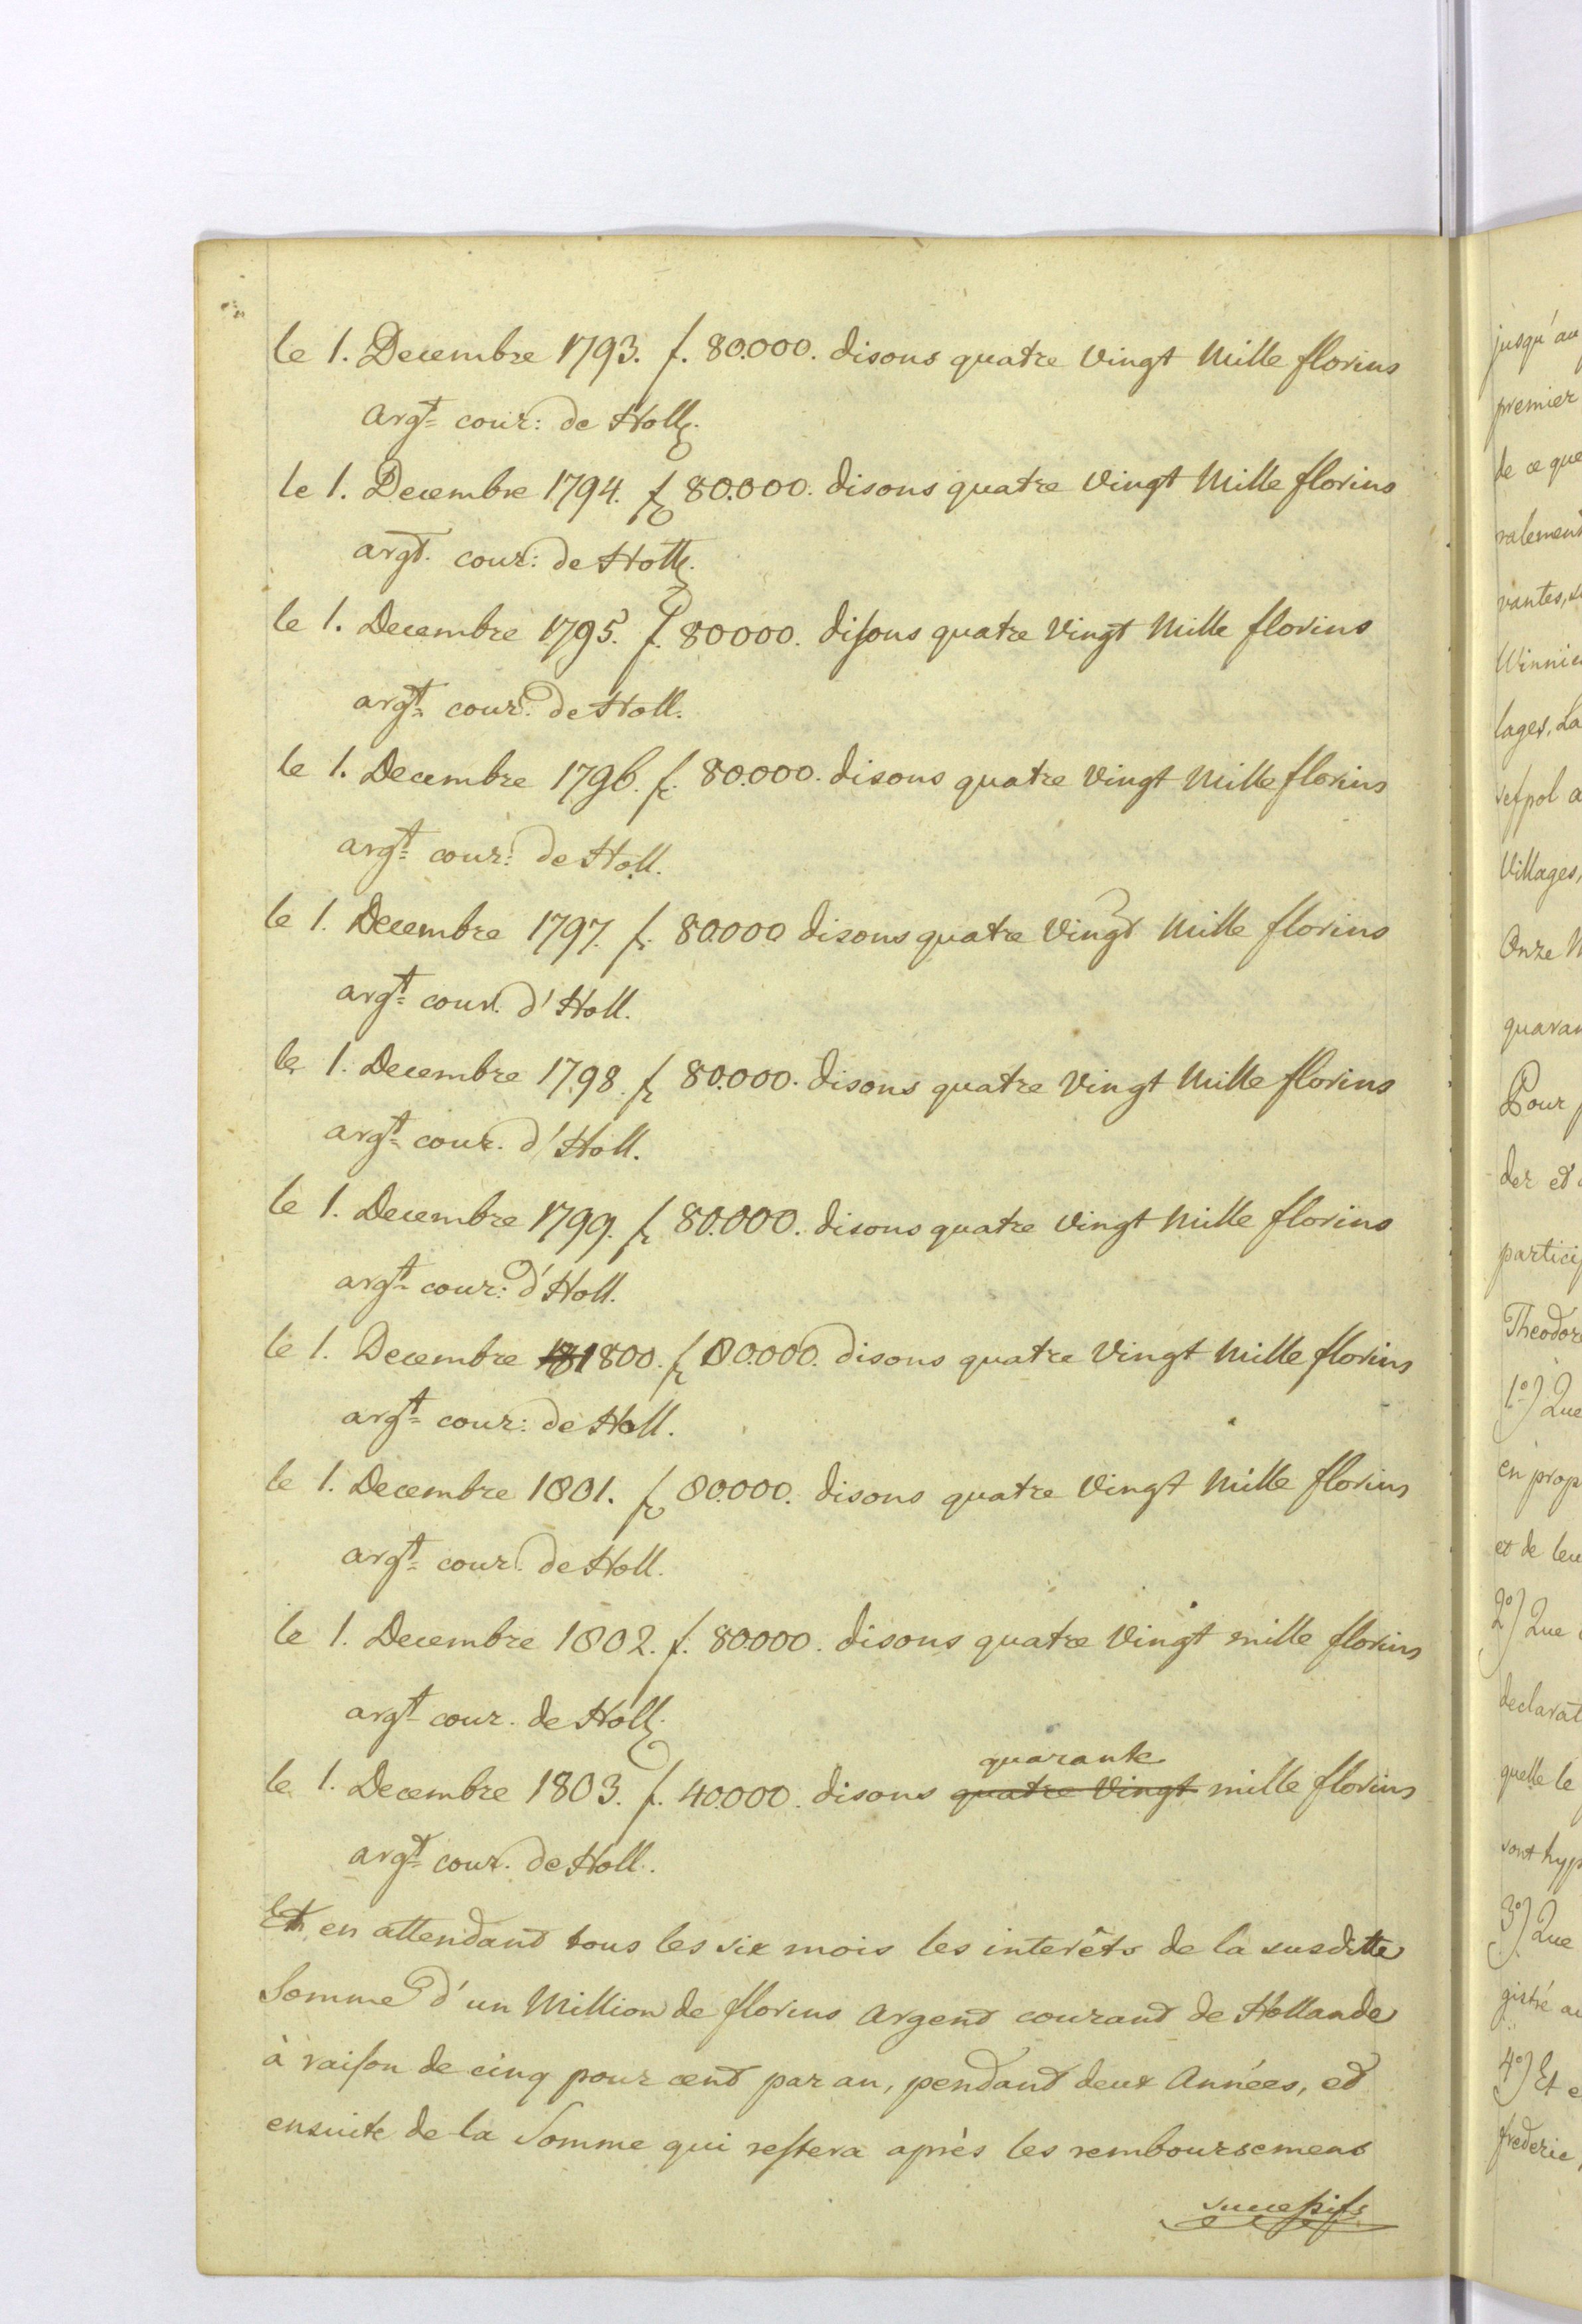 le 1. Decembre 1793. f. 80.000. disons quatre Vingt Mille florins
argt. cour: de Holl.
le 1. Decembre 1794. f. 80.000. disons quatre Vingt Mille florins
argt. cour: de Holl.
le 1. Decembre 1795. f. 80000. disons quatre Vingt Mille florins
argt. cour: de Holl.
le 1. Decembre 1796. f. 80.000. disons quatre Vingt Mille florins
argt. cour: de Holl.
le 1. Decembre 1797. f. 80.000 disons quatre Vingt Mille florins
argt. cour. d'Holl.
le 1. Decembre 1798. f. 80.000. disons quatre Vingt Mille florins
argt. cour. d'Holl.
le 1. Decembre 1799. f. 80.000. disons quatre Vingt Mille florins
argt. cour: d'Holl.
le 1. Decembre 1800. f. 80.000. disons quatre Vingt Mille florins
argt. cour: de Holl.
le 1. Decembre 1801. f. 80.000. disons quatre Vingt Mille florins
argt. cour. de Holl.
le 1. Decembre 1802. f. 80.000. disons quatre Vingt mille florins
argt. cour. de Holl.
quarante
le 1. Decembre 1803. f. 40.000. disons quatre Vingt mille florins
argt. cour. de Holl.
Et en attendant tous les six mois les interêts de la susditte
Somme d'un Million de florins Argent courant de Hollande
à raison de cinq pour cent par an, pendant deux Années, et
ensuite de la Somme qui restera après les remboursemens
successifs
jusqu'au
premier
de ce que
ralement
vantes,
Winnic
lages, La
Villages,
Onze
quaran
Pour
der et
particip
Theodor
1°) Que
en prop
et de leu
2°) Que
declarat
quelle le
sont hyp
3°) Que
gistré au
4°) Et e
frederic